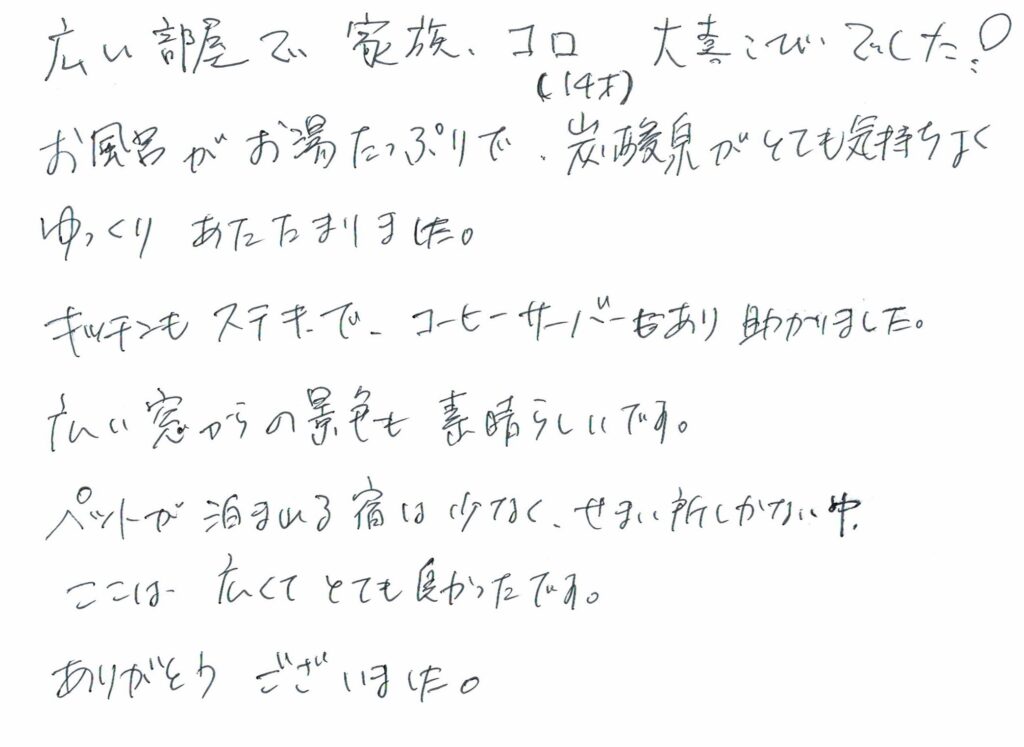 広い部屋で 家族、コロ 大喜こびでした!
(14才)
お風呂がお湯たっぷりで、炭酸泉がとても気持ちよく
ゆっくり あたたまりました。
キッチンも ステキで、コーヒーサーバーもあり 助かりました。
広い窓からの景色も 素晴らしいです。
ペットが 泊まれる宿は少なく、せまい所しかない中、
ここは 広くて とても良かったです。
ありがとう ございました。